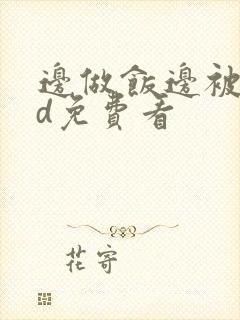 邊做飯邊被
d免費看
花寄